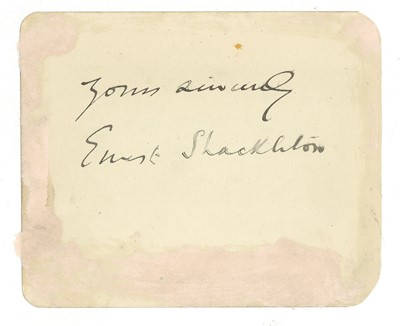 Yours sincerely
Ernest Shackleton